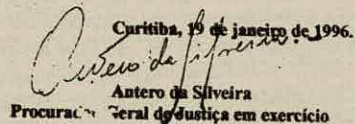 Curitiba, 19 de janeiro de 1996.
Antero da Silveira
Antero da Silveira
Procurador Geral de Justiça em exercício